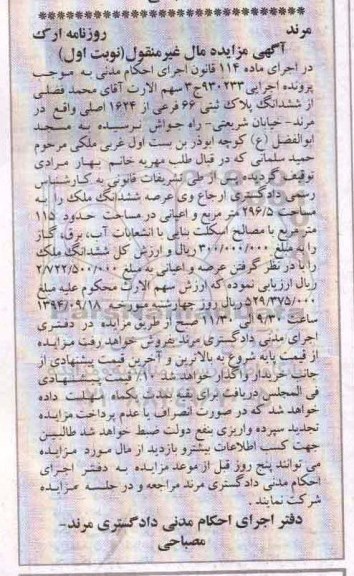 مرند روزنامه ارک
آگهی مزایده مال غیرمنقول(نوبت اول)
در اجرای ماده ۱۱۴ قانون اجرای احکام مدنی به موجب
پرونده اجرایی ۹۳۰۲۳۳ج۳ سهم الارث آقای محمد فضلی
از ششدانگ پلاک ثبتی ۶۶ فرعی از ۱۶۲۴ اصلی واقع در
مرند-خیابان شریعتی- راه جواش نرسیده به مسجد
ابوالفضل (ع) کوچه ابوذر بن بست اول غربی ملکی مرحوم
حمید سلمانی که در قبال طلب مهریه خانم بهار مرادی
توقیف گردیده پس از طی تشریفات قانونی به کارشناس
رسمی دادگستری ارجاع وی عرصه ششدانگ ملک را به
مساحت ۲۹۶/۵ متر مربع و اعیانی در مساحت حدود ۱۱۵
مترمربع با مصالح اسکلت بنایی با انشعابات آب، برق، گاز
را به مبلغ ۳۰۰/۰۰۰/۰۰۰ ریال و ارزش کل ششدانگ ملک
را با در نظر گرفتن عرصه و اعیانی به مبلغ ۲/۷۲۲/۵۰۰/۰۰۰
ریال ارزیابی نموده که ارزش سهم الارث محکوم علیه مبلغ
۵۲۹/۳۷۵/۰۰۰ ریال روز چهارشنبه مورخه ۱۳۹۴/۰۹/۱۸
ساعت ۹/۳۰ الی ۱۱/۳۰ صبح از طریق مزایده در دفتری
اجرای مدنی دادگستری مرند بفروش خواهد رفت مزایده
از قیمت پایه شروع به بالاترین و آخرین قیمت پیشنهادی از
جانب خریدار واگذار خواهد شد ۱۰٪ قیمت پیشنهادی
فی المجلس دریافت برای بقیه بمدت یکماه مهلت داده
خواهد شد که در صورت انصراف یا عدم پرداخت مزایده
تجدید سپرده واریزی بنفع دولت ضبط خواهد شد طالبین
جهت کسب اطلاعات بیشتر و بازدید از مال مورد مزایده
می توانند پنج روز قبل از موعد مزایده به دفتر اجرای
احکام مدنی دادگستری مرند مراجعه و در جلسه مزایده
شرکت نمایند.
دفتر اجرای احکام مدنی دادگستری مرند-
مصباحی